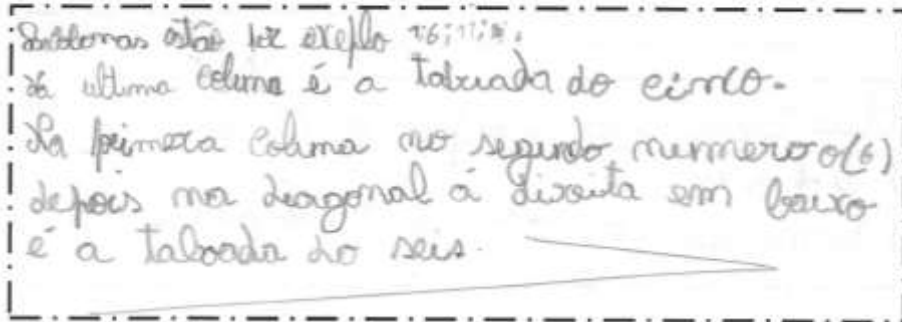 estão por exeplo 1;6;11;16.
Na ultima coluna é a tabuada do cinco.
Na primera coluna no segundo nummero o(6)
depois na deagonal á direita em baixo
é a taboada do seis.